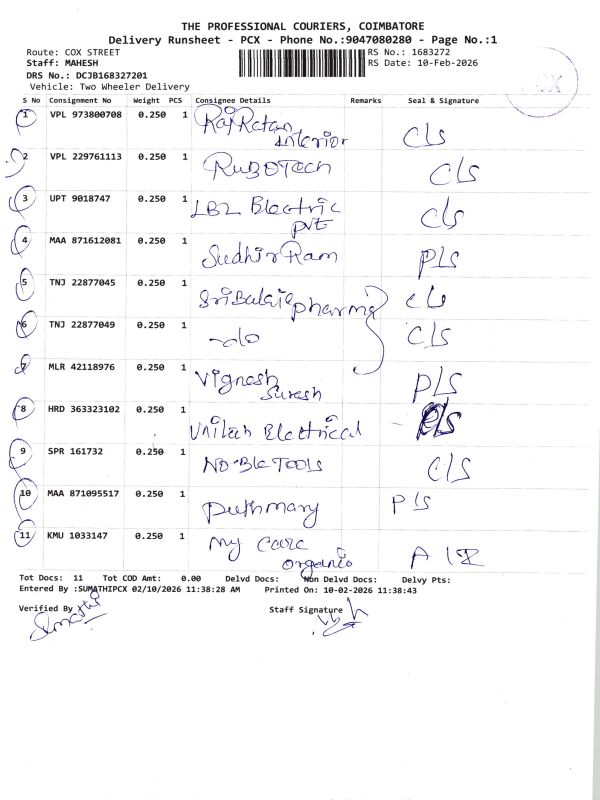 THE PROFESSIONAL COURIERS, COIMBATORE
Delivery Runsheet - PCX - Phone No.:9047080280 - Page No.:1
Route: COX STREET
RS No.: 1683272
Staff: MAHESH
RS Date: 10-Feb-2026
DRS No.: DCJB168327201
Vehicle: Two Wheeler Delivery
PCX
S No Consignment No Weight PCS Consignee Details Remarks Seal & Signature
1 VPL 973800708 0.250 1 RajRatan Interior C/S
2 VPL 229761113 0.250 1 RuBOTech C/S
3 UPT 9018747 0.250 1 LBL Electric pvt C/S
4 MAA 871612081 0.250 1 Sudhir Ram P/S
5 TNJ 22877045 0.250 1 Sri Balaje pharma C/S
6 TNJ 22877049 0.250 1 -do C/S
7 MLR 42118976 0.250 1 Vignesh Suresh P/S
8 HRD 363323102 0.250 1 Electrical P/S
9 SPR 161732 0.250 1 NO-Ble TOOLS C/S
10 MAA 871095517 0.250 1 P/S
11 KMU 1033147 0.250 1 My Care organic
Tot Docs: 11 Tot COD Amt: 0.00 Delvd Docs: Non Delvd Docs: Delvy Pts:
Entered By :SUMATHIPCX 02/10/2026 11:38:28 AM Printed On: 10-02-2026 11:38:43
Verified By Staff Signature
Sumathi